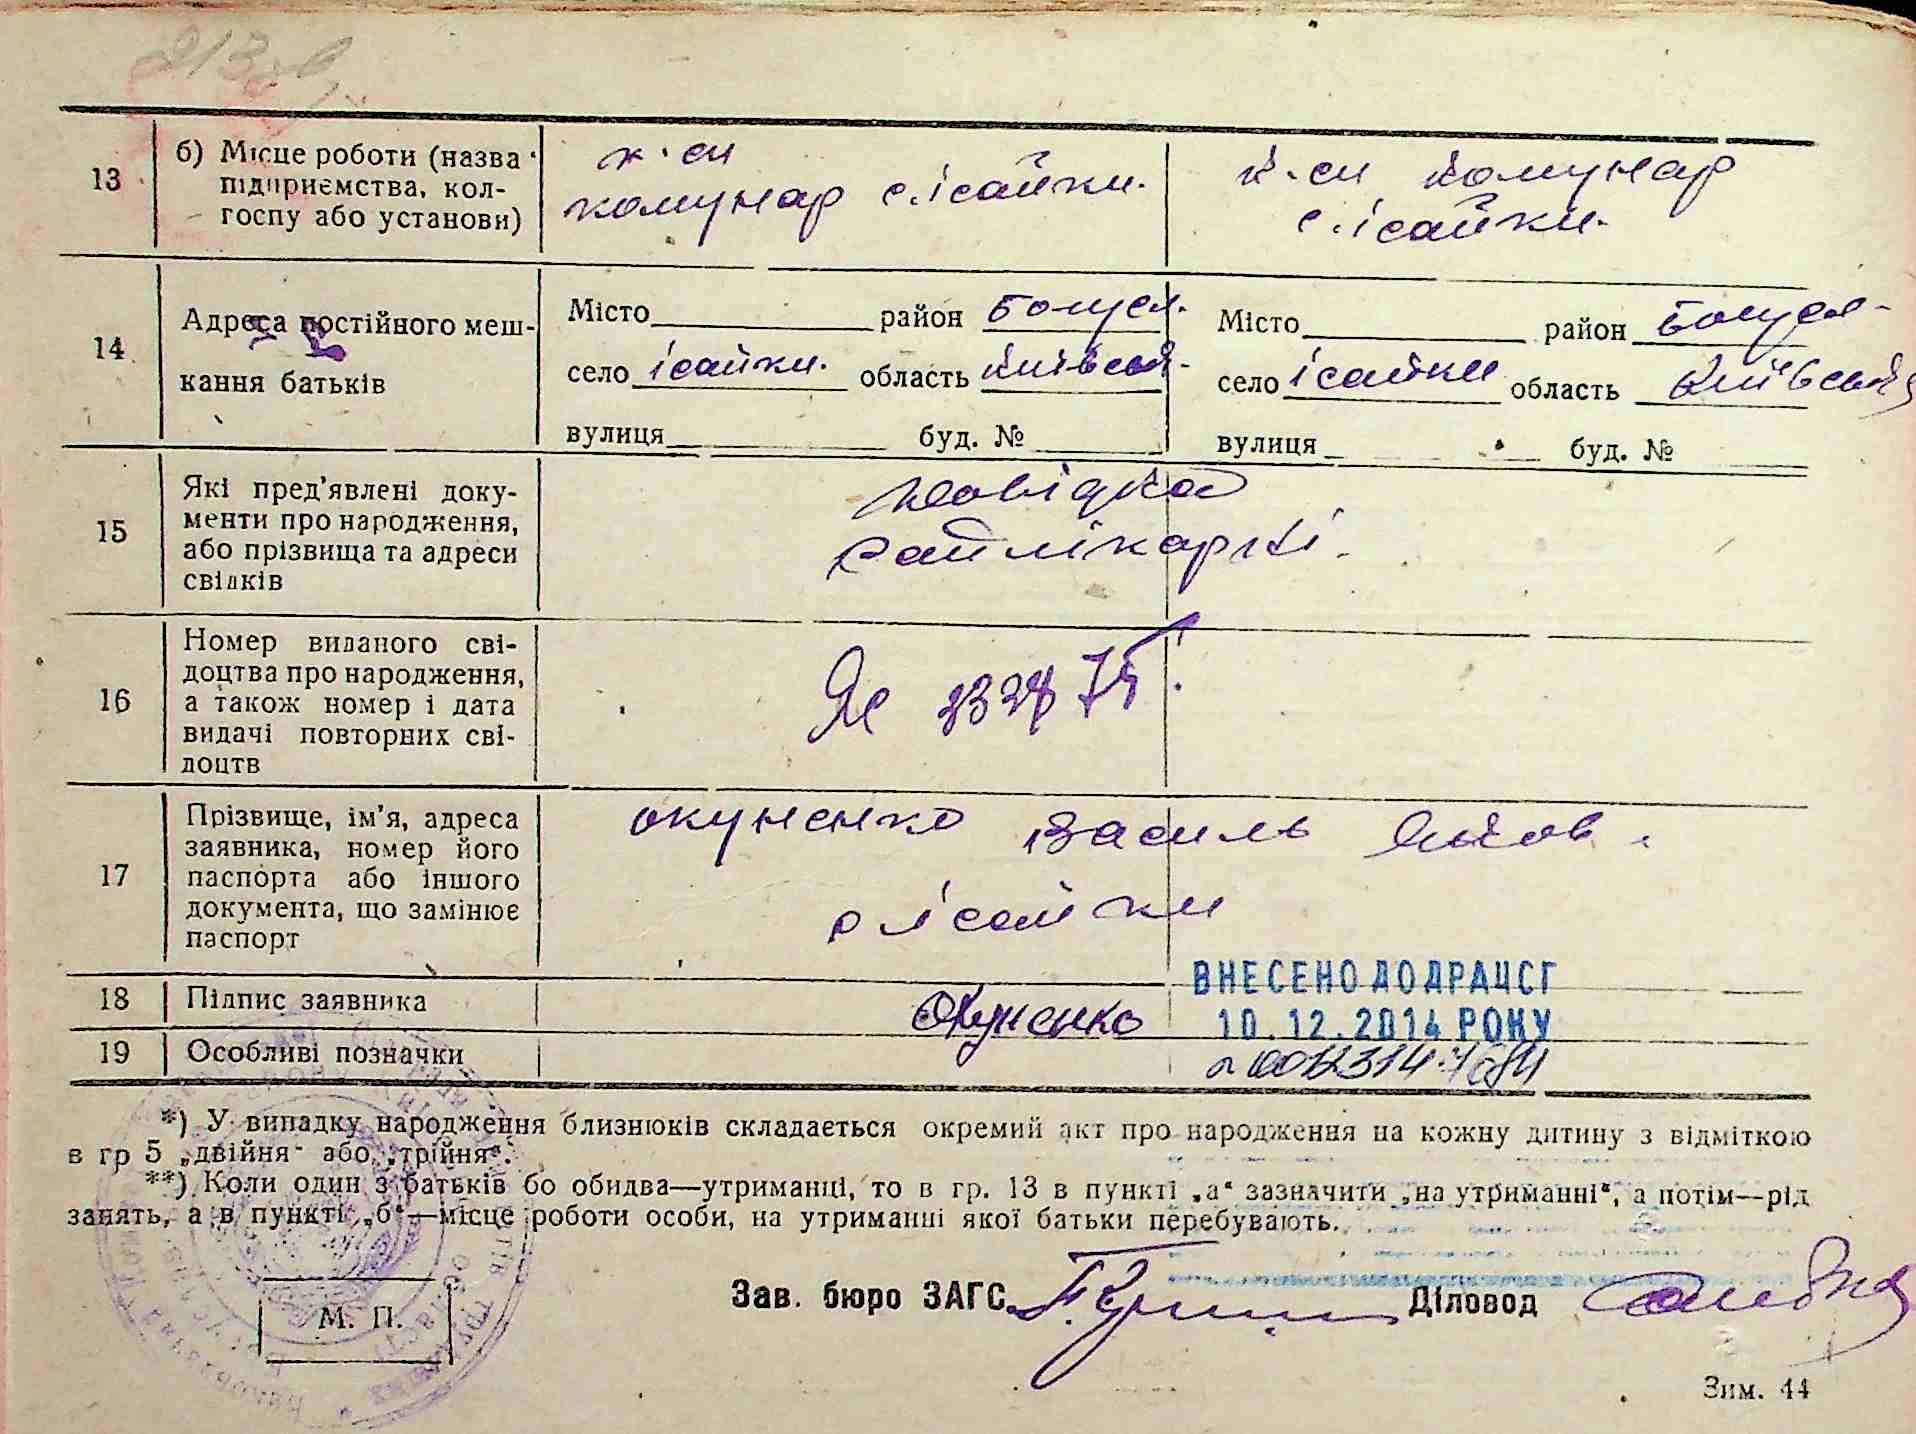 13 б) Місце роботи (назва підприємства, колгоспу або установи)
к-сп комунар с. Ісайки.
к-сп комунар с. Ісайки.
14 Адреса постійного мешкання батьків
Місто район Богусл.
село Ісайки. область Київськ-
вулиця буд. №
Місто район Богусл-
село Ісайки область Київська
вулиця буд. №
15 Які пред'явлені документи про народження, або прізвища та адреси свідків
довідка
райлікарні.
16 Номер виданого свідоцтва про народження, а також номер і дата видачі повторних свідоцтв
17 Прізвище, ім'я, адреса заявника, номер його паспорта або іншого документа, що замінює паспорт
Окуненко Василь
с Ісайки
18 Підпис заявника
Окуненко
ВНЕСЕНО ДО ДРАЦСГ
10.12.2014 РОКУ
19 Особливі позначки
*) У випадку народження близнюків складається окремий акт про народження на кожну дитину з відміткою
в гр 5 „двійня" або „трійня".
**) Коли один з батьків бо обидва—утриманці, то в гр. 13 в пункті „а" зазначити „на утриманні", а потім—рід
занять, а в пункті „б"—місце роботи особи, на утриманні якої батьки перебувають.
Зав. бюро ЗАГС
Діловод
М. П.
Зим. 44